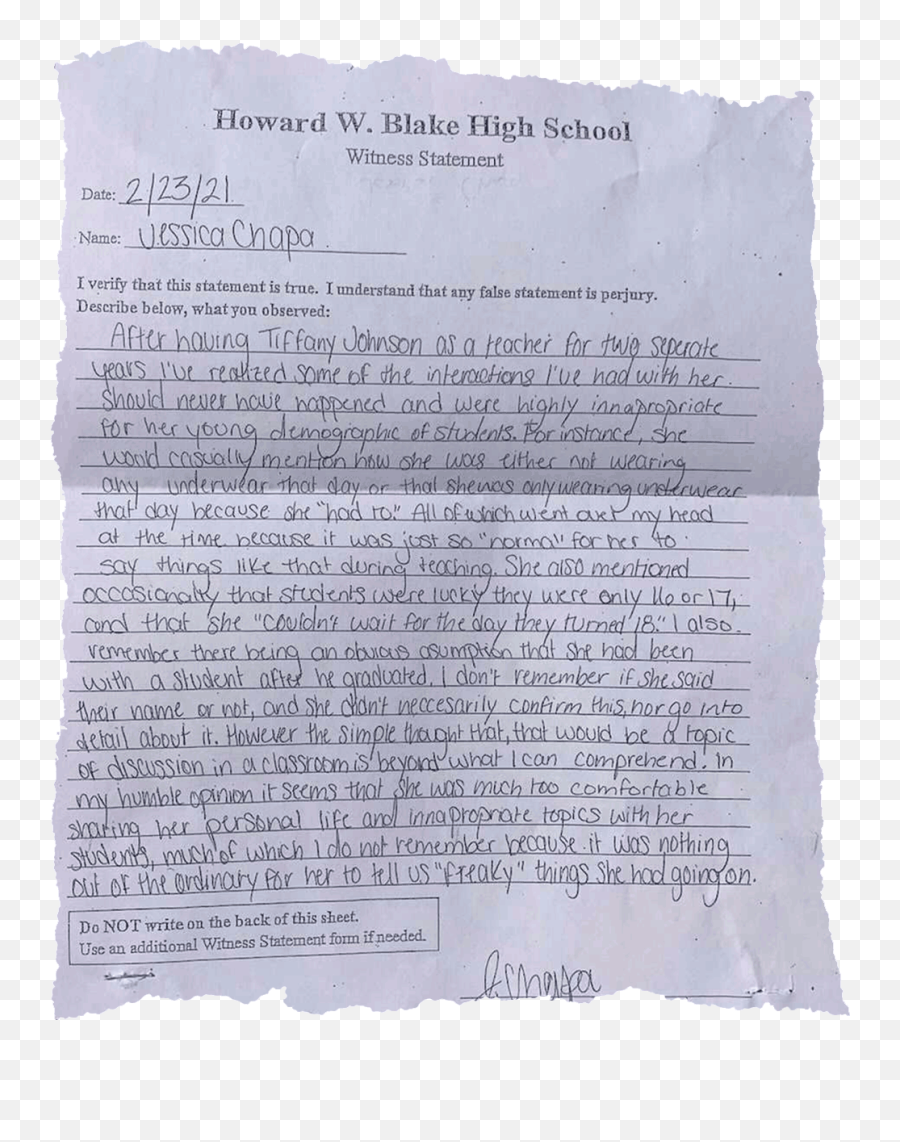 Howard W. Blake High School
Witness Statement
Date: 2/23/21
Name: Jessica Chapa
I verify that this statement is true. I understand that any false statement is perjury.
Describe below, what you observed:
After having Tiffany Johnson as a teacher for two seperate
years I've realized some of the interactions I've had with her.
Should never have happened and were highly innapropriate
for her young demographic of students. For instance, she
would casually mention how she was either not wearing
any underwear that day or that she was only wearing underwear
that day because she "had to." All of which went over my head
at the time because it was just so "normal" for her to
say things like that during teaching. She also mentioned
occasionally that students were lucky they were only 16 or 17,
and that she "couldn't wait for the day they turned 18." I also
remember there being an obvious asumption that she had been
with a student after he graduated. I don't remember if she said
their name or not, and she didn't neccesarily confirm this, nor go into
detail about it. However the simple thought that, that would be a topic
of discussion in a classroom is beyond what I can comprehend. In
my humble opinion it seems that she was much too comfortable
sharing her personal life and innapropriate topics with her
students, much of which I do not remember because it was nothing
out of the ordinary for her to tell us "freaky" things she had going on.
Do NOT write on the back of this sheet.
Use an additional Witness Statement form if needed.